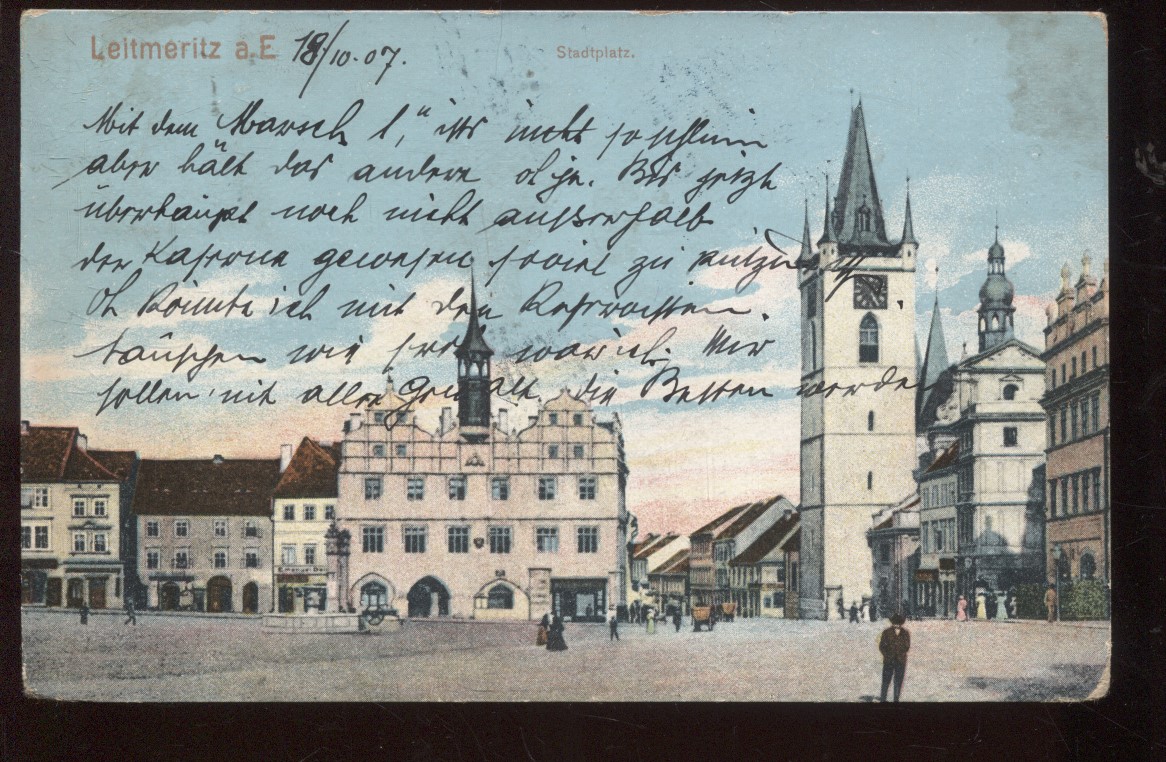 Leitmeritz a.E 18/10.07.
Stadtplatz.
Mit dem Marsch 1, ists nicht so schlim
aber hält das andere
Bis jetzt
überhaupt noch nicht außerhalb
der Kaserne gewesen soviel zu putzen
Oh könnte ich mit den
täuschen wie froh wär ich. Wir
sollen mit aller Gewalt die Besten werden